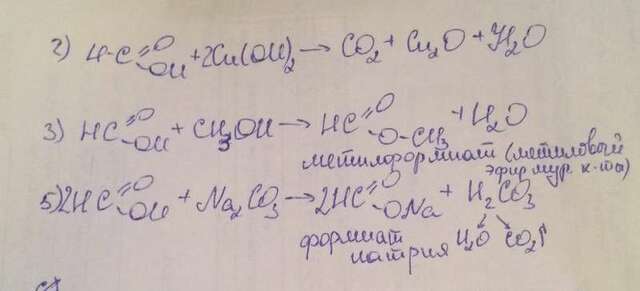 2) H-C=O OH + 2Cu(OH)2 → CO2 + Cu2O + H2O
3) HC=O OH + CH3OH → HC=O O-CH3 + H2O
метилформиат (метиловый
эфир мур. к-ты)
5) 2HC=O OH + Na2CO3 → 2HC=O ONa + H2CO3
формиат H2O CO2↑
натрия